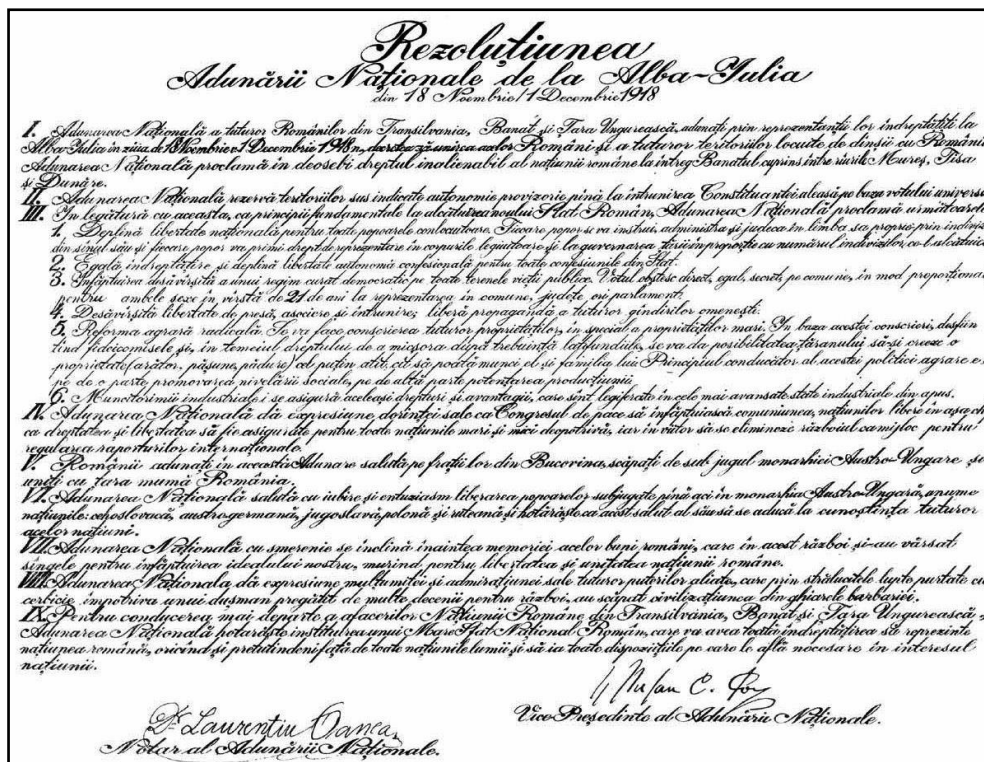 Rezoluțiunea
Adunării Naționale de la Alba-Iulia
din 18 Noembrie/1 Decembrie 1918
I. Adunarea Națională a tuturor Românilor din Transilvania, Banat și Țara Ungurească, adunați prin reprezentanții lor îndreptățiți la
Alba-Iulia în ziua de 18 Noembrie/1 Decembrie 1918, decretează unirea acelor Români și a tuturor teritoriilor locuite de dînșii cu România.
Adunarea Națională proclamă în deosebi dreptul inalienabil al națiunii române la întreg Banatul cuprins între rîurile Mureș, Tisa
și Dunăre.
II. Adunarea Națională rezervă teritoriilor sus indicate autonomie provizorie pînă la întrunirea Constituantei aleasă pe baza votului univers
III. În legătură cu aceasta, ca principii fundamentale la alcătuirea noului Stat Român, Adunarea Națională proclamă următoarele
1. Deplină libertate națională pentru toate popoarele conlocuitoare. Fiecare popor se va instrui, administra și judeca în limba sa proprie prin indivizi
din sînul său și fiecare popor va primi drept de reprezentare în corpurile legiuitoare și la guvernarea țării în proporție cu numărul indivizilor ce-l alcătuiesc
2. Egală îndreptățire și deplină libertate autonomă confesională pentru toate confesiunile din Stat.
3. Înfăptuirea desăvîrșită a unui regim curat democratic pe toate terenele vieții publice. Votul obștesc, direct, egal, secret, pe comune, în mod proporțional
pentru ambele sexe în vîrstă de 21 de ani la reprezentarea în comune, județe ori parlament.
4. Desăvîrșită libertate de presă, asociere și întrunire; liberă propagandă a tuturor gîndirilor omenești.
5. Reforma agrară radicală. Se va face conscrierea tuturor proprietăților, în special a proprietăților mari. În baza acestei conscrieri, desfiin
țînd fideicomisele și, în temeiul dreptului de a micșora după trebuință latifundiile, se va da posibilitatea țăranului să-și creeze o
proprietate (arător, pășune, pădure) cel puțin atît, cît să poată munci el și familia lui. Principiul conducător al acestei politici agrare e
pe de o parte promovarea nivelării sociale, pe de altă parte potențarea producțiunii.
6. Muncitorimii industriale i se asigură aceleași drepturi și avantagii, care sînt legiferate în cele mai avansate state industriale din apus.
IV. Adunarea Națională dă expresiune dorinței sale ca Congresul de pace să înfăptuiască comuniunea națiunilor libere în așa ch
ca dreptatea și libertatea să fie asigurate pentru toate națiunile mari și mici deopotrivă, iar în viitor să se elimineze războiul ca mijloc pentru
regularea raporturilor internaționale.
V. Românii adunați în această Adunare salută pe frații lor din Bucovina, scăpați de sub jugul monarhiei Austro-Ungare și
uniți cu țara mumă România.
VI. Adunarea Națională salută cu iubire și entuziasm liberarea popoarelor subjugate pînă aci în monarhia Austro-Ungară, anume
națiunile: cehoslovacă, austro-germană, jugoslavă, polonă și ruteană și hotărăște ca acest salut al său să se aducă la cunoștința tuturor
acelor națiuni.
VII. Adunarea Națională cu smerenie se închină înaintea memoriei acelor buni români, care în acest război și-au vărsat
sîngele pentru înfăptuirea idealului nostru, murind pentru libertatea și unitatea națiunii române.
VIII. Adunarea Națională dă expresiune mulțumitei și admirațiunei sale tuturor puterilor aliate, care prin strălucitele lupte purtate cu
cerbicie împotriva unui dușman pregătit de multe decenii pentru război, au scăpat civilizațiunea din ghiarele barbariei.
IX. Pentru conducerea mai departe a afacerilor Națiunii Române din Transilvania, Banat și Țara Ungurească,
Adunarea Națională hotărăște instituirea unui Mare Sfat Național Român, care va avea toată îndreptățirea să reprezinte
națiunea română, oricînd și pretutindeni față de toate națiunile lumii și să ia toate dispozițiile pe care le află necesare în interesul
națiunii.
Ștefan C. Pop
Vice Președinte al Adunării Naționale.
Dr Laurențiu Oanea
Notar al Adunării Naționale.